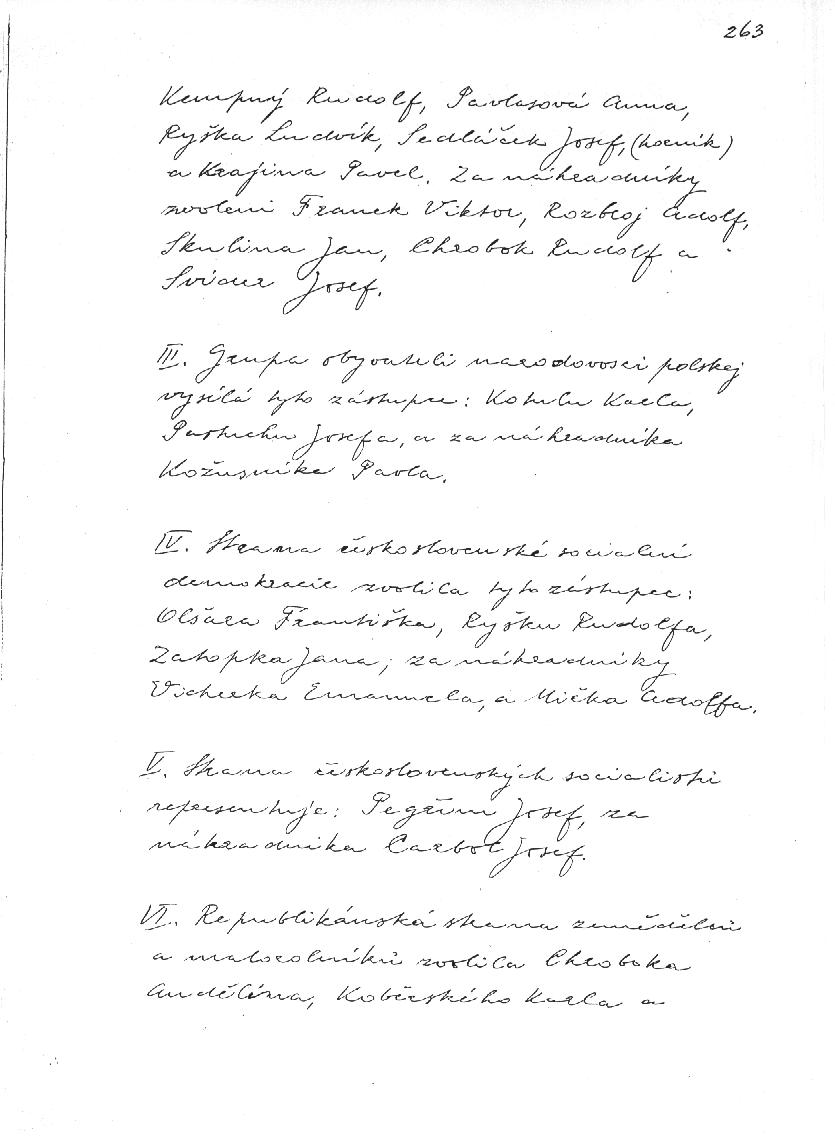 263
Kempný Rudolf, Pavlasová Anna,
Ryška Ludvík, Sedláček Josef, (horník)
a Krajina Pavel. Za náhradníky
zvoleni Franek Viktor, Rozbroj Adolf,
Skulina Jan, Chrobok Rudolf a
Svider Josef.
III. Grupa obyvateli narodovosci polskej
vysílá tyto zástupce: Kotulu Karla,
Pastuchu Josefa, a za náhradníka
Kožusníka Pavla.
IV. Strana československé socialní
demokracie zvolila tyto zástupce:
Olšara Františka, Ryšku Rudolfa,
Zatopka Jana, za náhradníky
Vicherka Emanuela, a Mička Adolfa.
V. Strana československých socialistů
representuje: Pegřim Josef, za
náhradníka Carbol Josef.
VI. Republikánská strana zemědělců
a malorolníků zvolila Chroboka
Anděléna, Koběrského Karla a